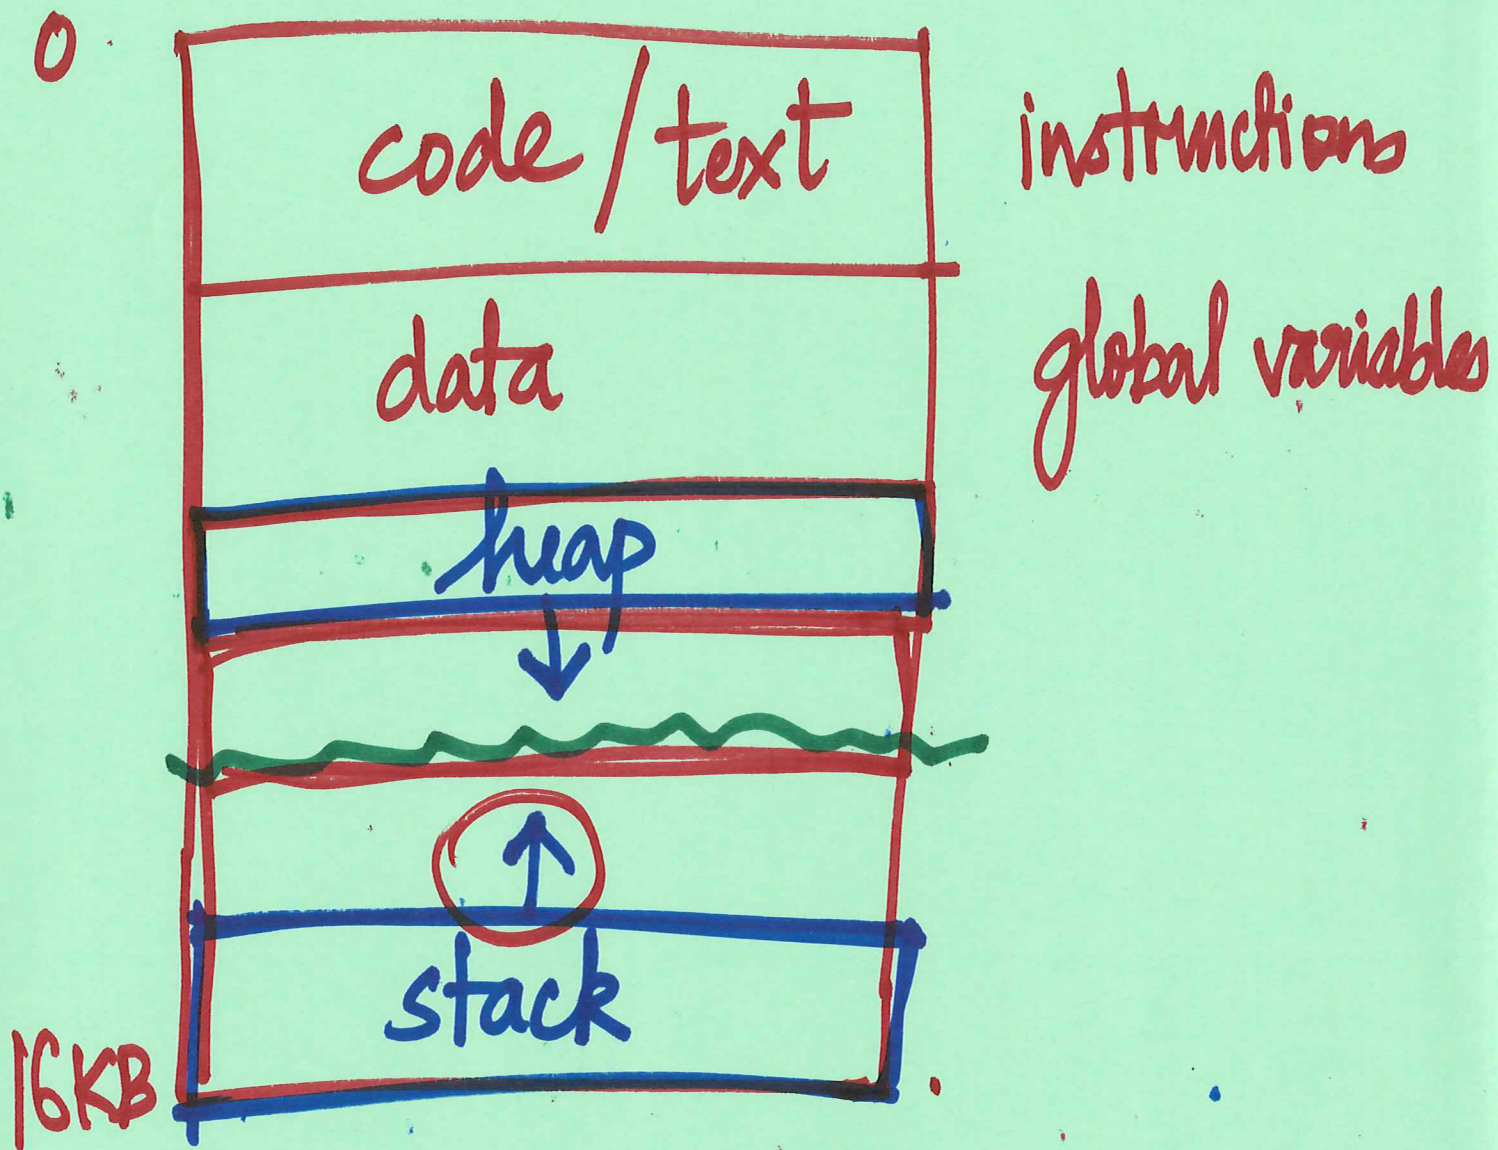 0
code/text instructions
data global variables
heap
stack
16KB